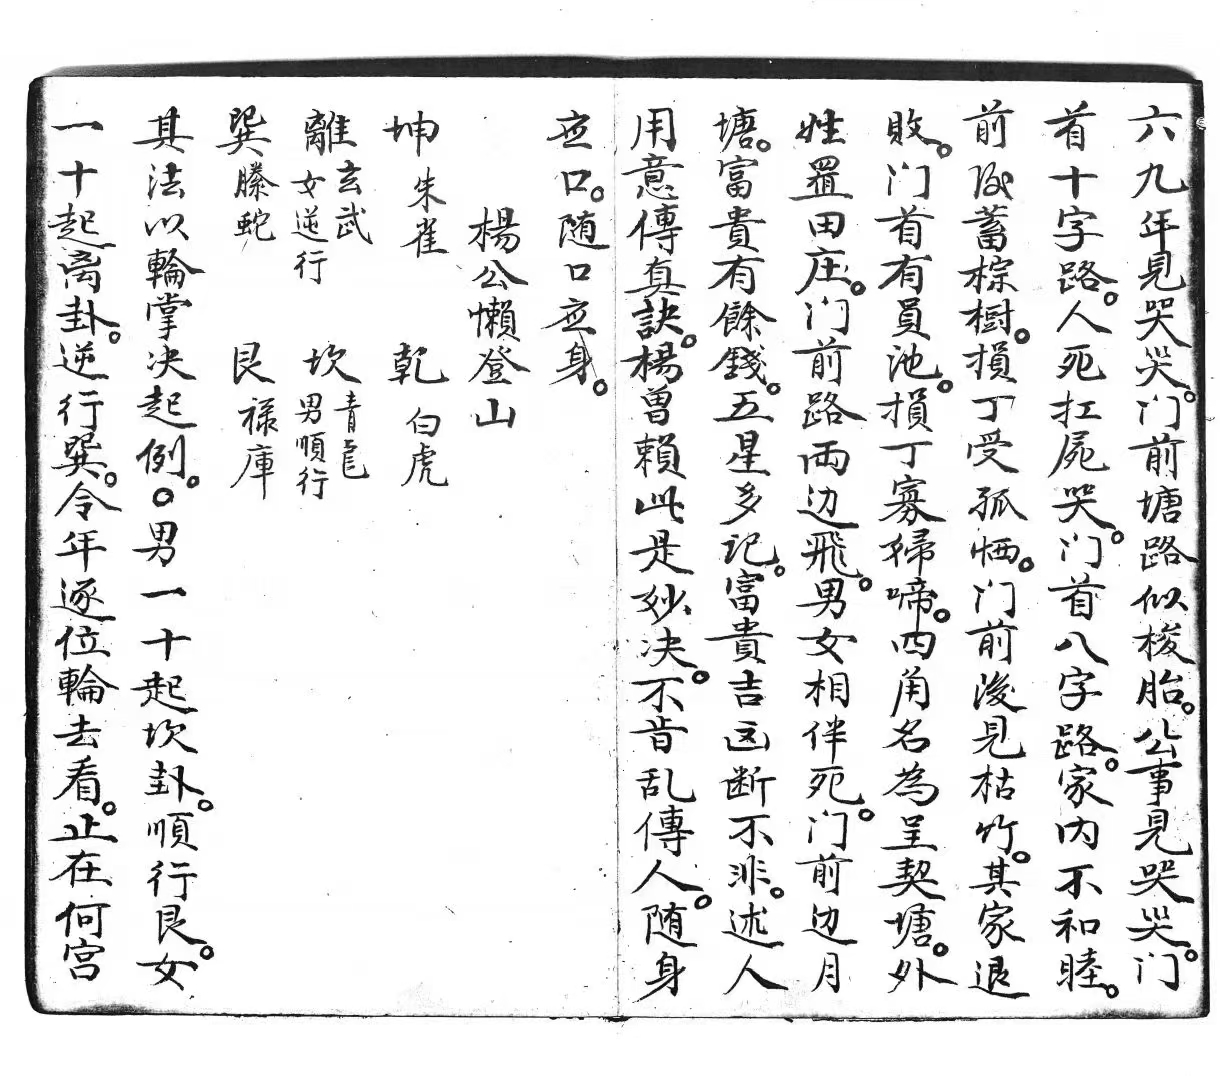 六九年見哭哭。门前塘路似梭胎。公事見哭哭。门
首十字路。人死扛屍哭。门首八字路。家内不和睦。
前陂蓄棕樹。損丁受孤恓。门前後見枯竹。其家退
敗。门首有員池。損丁寡婦啼。四角名為呈契塘。外
姓置田庄。门前路両边飛。男女相伴死。门前边月
塘。富貴有餘錢。五星多記。富貴吉凶断不非。述人
用意傳真訣。楊曽賴此是妙决。不肯乱傳人。随身
应口。随口应身。
楊公懒登山
坤 朱雀 乾 白虎
離 玄武 女逆行 坎 青龍 男順行
巽 螣蛇 艮 禄庫
其法以輪掌决起例。男一十起坎卦。順行艮。女
一十起离卦。逆行巽。令年逐位輪去看。止在何宫